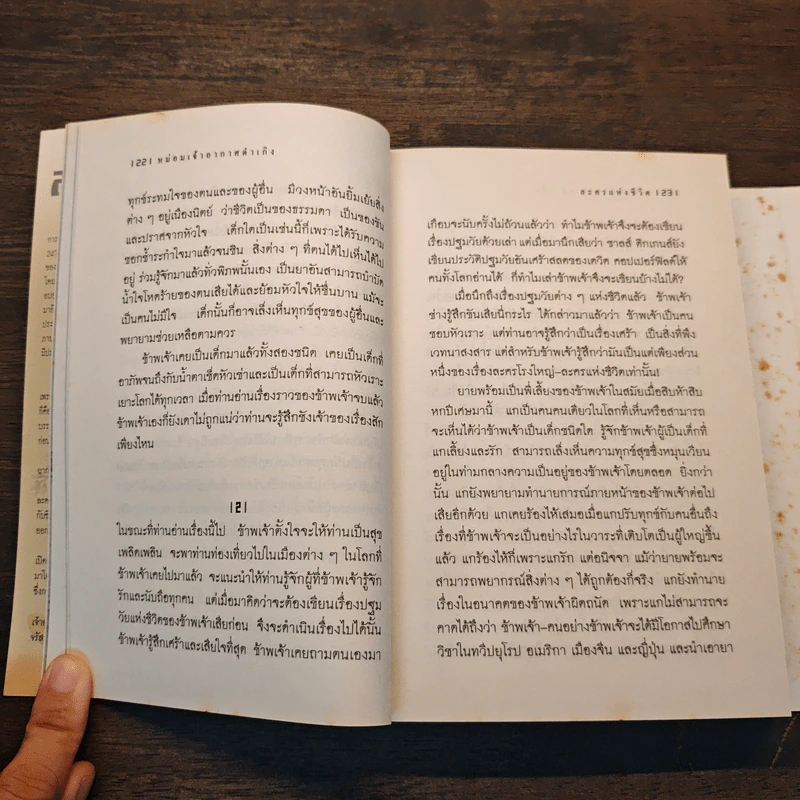 |22| หม่อมเจ้าอากาศดำเกิง
ทุกข์ระทมใจของตนและของผู้อื่น มีวงหน้าอันยิ้มเย้ยสิ่ง
ต่าง ๆ อยู่เนืองนิตย์ ว่าชีวิตเป็นของธรรมดา เป็นของขัน
และปราศจากหัวใจ เด็กใดเป็นเช่นนี้ก็เพราะได้รับความ
ชอกช้ำระกำใจมาแล้วจนชิน สิ่งต่าง ๆ ที่ตนได้ไปเห็นได้ไป
อยู่ ร่วมรู้จักมาแล้วทั่วพิภพนั้นเอง เป็นยาอันสามารถบำบัด
น้ำใจโหดร้ายของตนเสียได้และย้อมหัวใจให้ชื่นบาน แม้จะ
เป็นคนไม่มีใจ เด็กนั้นก็อาจเล็งเห็นทุกข์สุขของผู้อื่นและ
พยายามช่วยเหลือตามควร
ข้าพเจ้าเคยเป็นเด็กมาแล้วทั้งสองชนิด เคยเป็นเด็กที่
อาภัพจนถึงกับน้ำตาเช็ดหัวเข่าและเป็นเด็กที่สามารถหัวเราะ
เยาะโลกได้ทุกเวลา เมื่อท่านอ่านเรื่องราวของข้าพเจ้าจบแล้ว
ข้าพเจ้าเองก็ยังเดาไม่ถูกแน่ว่าท่านจะรู้สึกชังเจ้าของเรื่องสัก
เพียงไหน
|2|
ในขณะที่ท่านอ่านเรื่องนี้ไป ข้าพเจ้าตั้งใจจะให้ท่านเป็นสุข
เพลิดเพลิน จะพาท่านท่องเที่ยวไปในเมืองต่าง ๆ ในโลกที่
ข้าพเจ้าเคยไปมาแล้ว จะแนะนำให้ท่านรู้จักผู้ที่ข้าพเจ้ารู้จัก
รักและนับถือทุกคน แต่เมื่อมาคิดว่าจะต้องเขียนเรื่องปฐม
วัยแห่งชีวิตของข้าพเจ้าเสียก่อน จึงจะดำเนินเรื่องไปได้นั้น
ข้าพเจ้ารู้สึกเศร้าและเสียใจที่สุด ข้าพเจ้าเคยถามตนเองมา
ละครแห่งชีวิต |23|
เกือบจะนับครั้งไม่ถ้วนแล้วว่า ทำไมข้าพเจ้าจึงจะต้องเขียน
เรื่องปฐมวัยด้วยเล่า แต่เมื่อมานึกเสียว่า ชาลส์ ดิกเกนส์ยัง
เขียนประวัติปฐมวัยอันเศร้าสลดของเดวิด คอปเปอร์ฟิลด์ให้
คนทั้งโลกอ่านได้ ก็ทำไมเล่าข้าพเจ้าจึงจะเขียนบ้างไม่ได้?
เมื่อนึกถึงเรื่องปฐมวัยต่าง ๆ แห่งชีวิตแล้ว ข้าพเจ้า
ช่างรู้สึกขันเสียนี่กระไร ได้กล่าวมาแล้วว่า ข้าพเจ้าเป็นคน
ชอบหัวเราะ แต่ท่านอาจรู้สึกว่าเป็นเรื่องเศร้า เป็นสิ่งที่พึง
เวทนาสงสาร แต่สำหรับข้าพเจ้ารู้สึกว่ามันเป็นแต่เพียงส่วน
หนึ่งของเรื่องละครโรงใหญ่–ละครแห่งชีวิตเท่านั้น!
ยายพร้อมเป็นพี่เลี้ยงของข้าพเจ้าในสมัยเมื่อสิบห้าสิบ
หกปีเศษมานี้ แกเป็นคนคนเดียวในโลกที่เห็นหรือสามารถ
จะเห็นได้ว่าข้าพเจ้าเป็นเด็กชนิดใด รู้จักข้าพเจ้าผู้เป็นเด็กที่
แกเลี้ยงและรัก สามารถเล็งเห็นความทุกข์สุขซึ่งหมุนเวียน
อยู่ในท่ามกลางความเป็นอยู่ของข้าพเจ้าโดยตลอด ยิ่งกว่า
นั้น แกยังพยายามทำนายการณ์ภายหน้าของข้าพเจ้าต่อไป
เสียอีกด้วย แกเคยร้องไห้เสมอเมื่อแกปรับทุกข์กับคนอื่นถึง
เรื่องที่ข้าพเจ้าจะเป็นอย่างไรในวาระที่เติบโตเป็นผู้ใหญ่ขึ้น
แล้ว แกร้องไห้ก็เพราะแกรัก แต่อนิจจา แม้ว่ายายพร้อมจะ
สามารถพยากรณ์สิ่งต่าง ๆ ได้ถูกต้องก็จริง แกยังทำนาย
เรื่องในอนาคตของข้าพเจ้าผิดถนัด เพราะแกไม่สามารถจะ
คาดได้ถึงว่า ข้าพเจ้า–คนอย่างข้าพเจ้าจะได้มีโอกาสไปศึกษา
วิชาในทวีปยุโรป อเมริกา เมืองจีน และญี่ปุ่น และนำเอายา